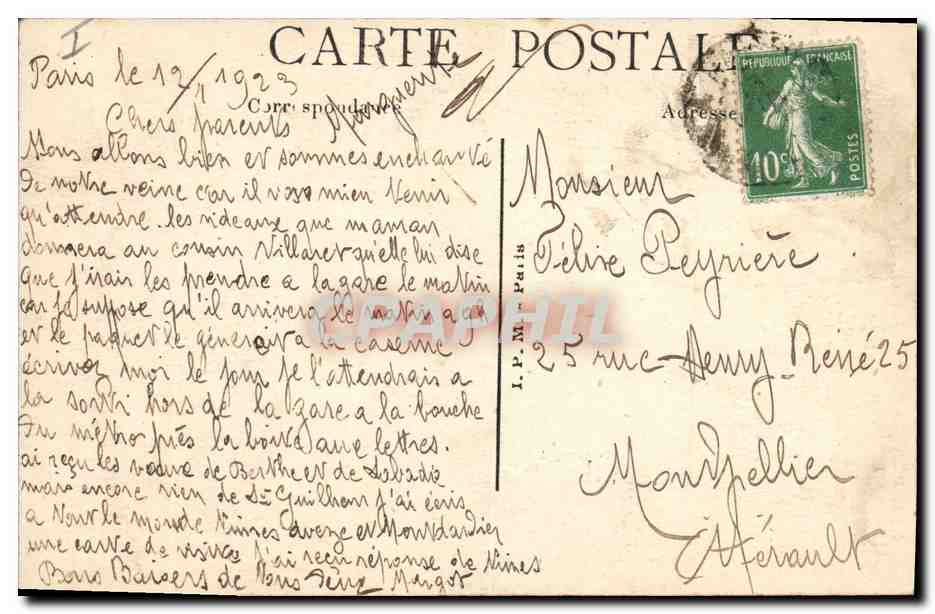 I
CARTE POSTALE
Paris le 12/1 1923
Marguerite
Correspondance
Adresse
Chers parents
Nous allons bien et sommes enchanté
de notre veine car il vaus mieu tenir
qu'attendre. les rideaux que maman
donnera au cousin Villaret qu'elle lui dise
que j'irais les prendre a la gare le matin
car je suppose qu'il arrivera le matin a 9h
et le paquet le générait a la caserne
écriver moi le jour je l'attendrais a
la sorti hors de la gare a la bouche
du métro près la boite aux lettres.
ai reçu les vœux de Berthe et de
mais encore rien de St Guilhem j'ai écris
a tout le monde Nimes Aveze et Montdardier
une carte de visite j'ai reçu réponse de Nimes
Bons Baisers de tous deux Margot
I. P. M. Paris
REPUBLIQUE FRANÇAISE
10c
POSTES
Monsieur
Félix Peyrière
25 rue Henry Reyé 25
Montpellier
Hérault
CPAPHIL